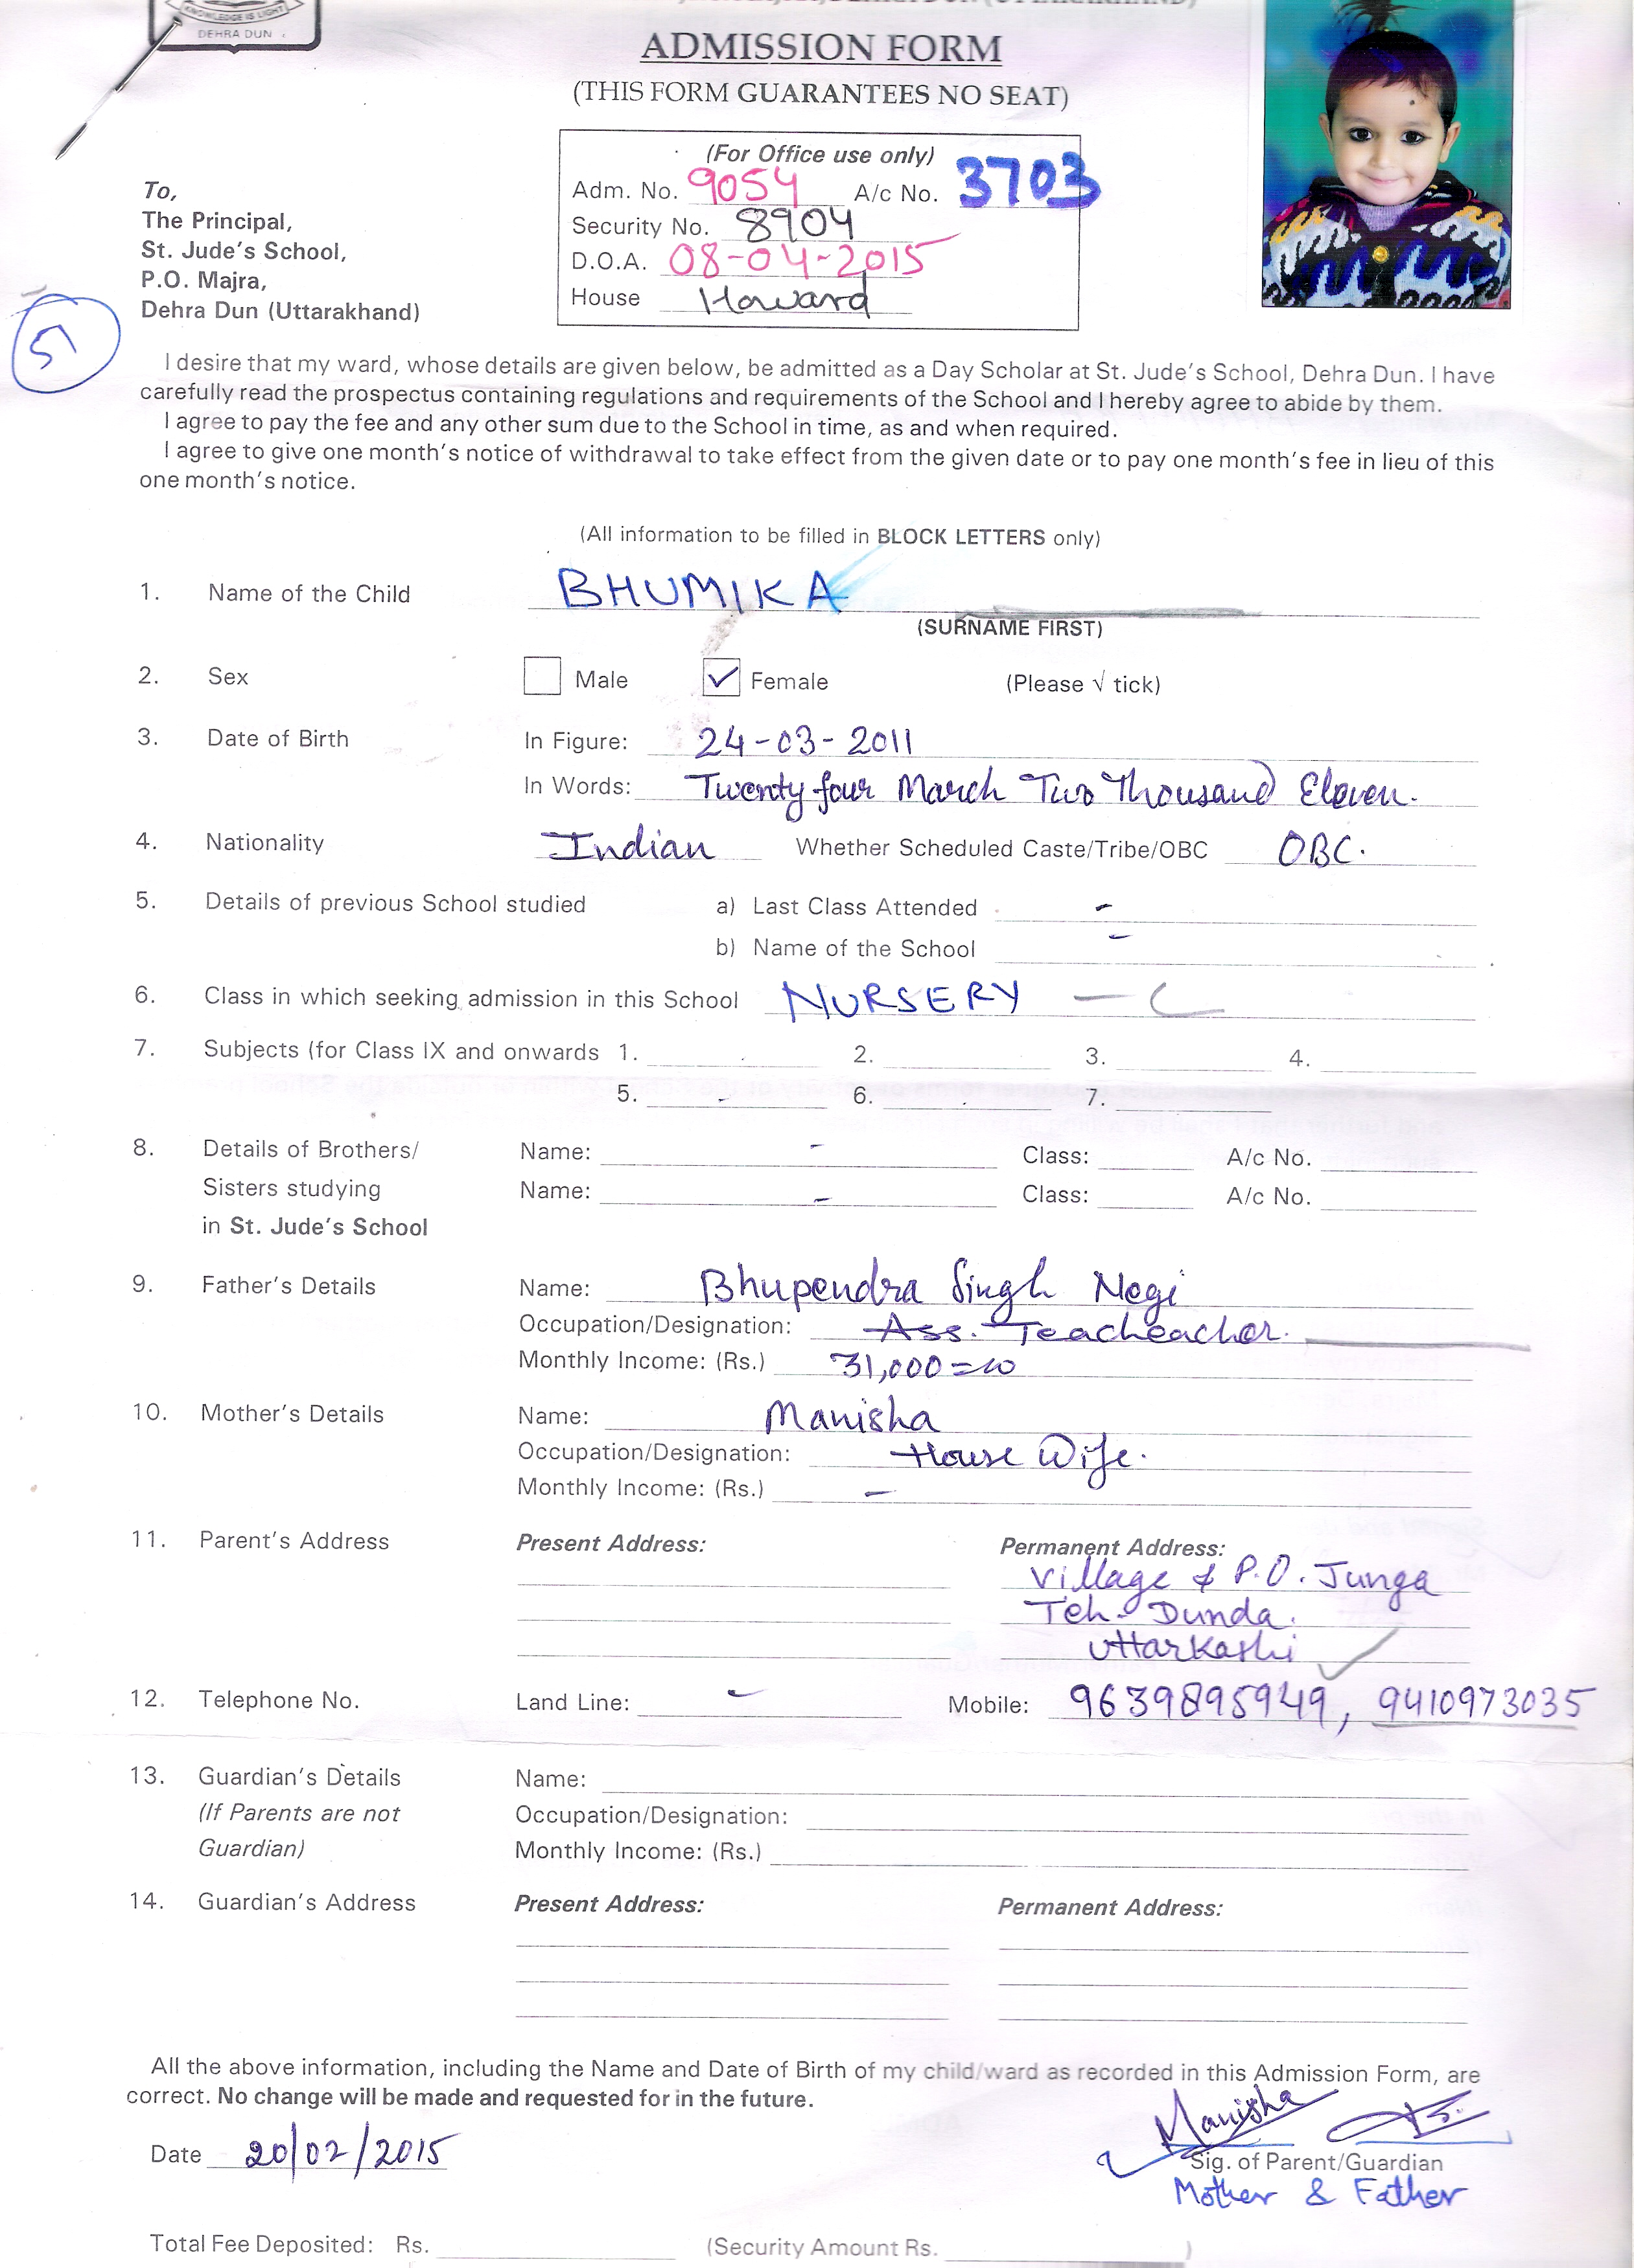 KNOWLEDGE IS LIGHT
DEHRA DUN
ADMISSION FORM
(THIS FORM GUARANTEES NO SEAT)
(For Office use only)
Adm. No. 9054 A/c No. 3703
Security No. 8904
D.O.A. 08-04-2015
House Howard
To,
The Principal,
St. Jude's School,
P.O. Majra,
Dehra Dun (Uttarakhand)
51
I desire that my ward, whose details are given below, be admitted as a Day Scholar at St. Jude's School, Dehra Dun. I have
carefully read the prospectus containing regulations and requirements of the School and I hereby agree to abide by them.
I agree to pay the fee and any other sum due to the School in time, as and when required.
I agree to give one month's notice of withdrawal to take effect from the given date or to pay one month's fee in lieu of this
one month's notice.
(All information to be filled in BLOCK LETTERS only)
1. Name of the Child BHUMIKA
(SURNAME FIRST)
2. Sex Male ✓ Female (Please √ tick)
3. Date of Birth In Figure: 24-03-2011
In Words: Twenty four March Two Thousand Eleven.
4. Nationality Indian Whether Scheduled Caste/Tribe/OBC OBC.
5. Details of previous School studied a) Last Class Attended -
b) Name of the School -
6. Class in which seeking admission in this School NURSERY - C
7. Subjects (for Class IX and onwards 1. 2. 3. 4.
5. 6. 7.
8. Details of Brothers/ Name: - Class: A/c No.
Sisters studying Name: - Class: A/c No.
in St. Jude's School
9. Father's Details Name: Bhupendra Singh Negi
Occupation/Designation: Ass. Teacheacher.
Monthly Income: (Rs.) 31,000=00
10. Mother's Details Name: Manisha
Occupation/Designation: House Wife.
Monthly Income: (Rs.) -
11. Parent's Address Present Address: Permanent Address:
Village & P.O. Junga
Teh- Dunda.
Uttarkashi
12. Telephone No. Land Line: - Mobile: 9639895949, 9410973035
13. Guardian's Details Name:
(If Parents are not Occupation/Designation:
Guardian) Monthly Income: (Rs.)
14. Guardian's Address Present Address: Permanent Address:
All the above information, including the Name and Date of Birth of my child/ward as recorded in this Admission Form, are
correct. No change will be made and requested for in the future.
Manisha
Date 20/02/2015 Sig. of Parent/Guardian
Mother & Father
Total Fee Deposited: Rs. (Security Amount Rs. )